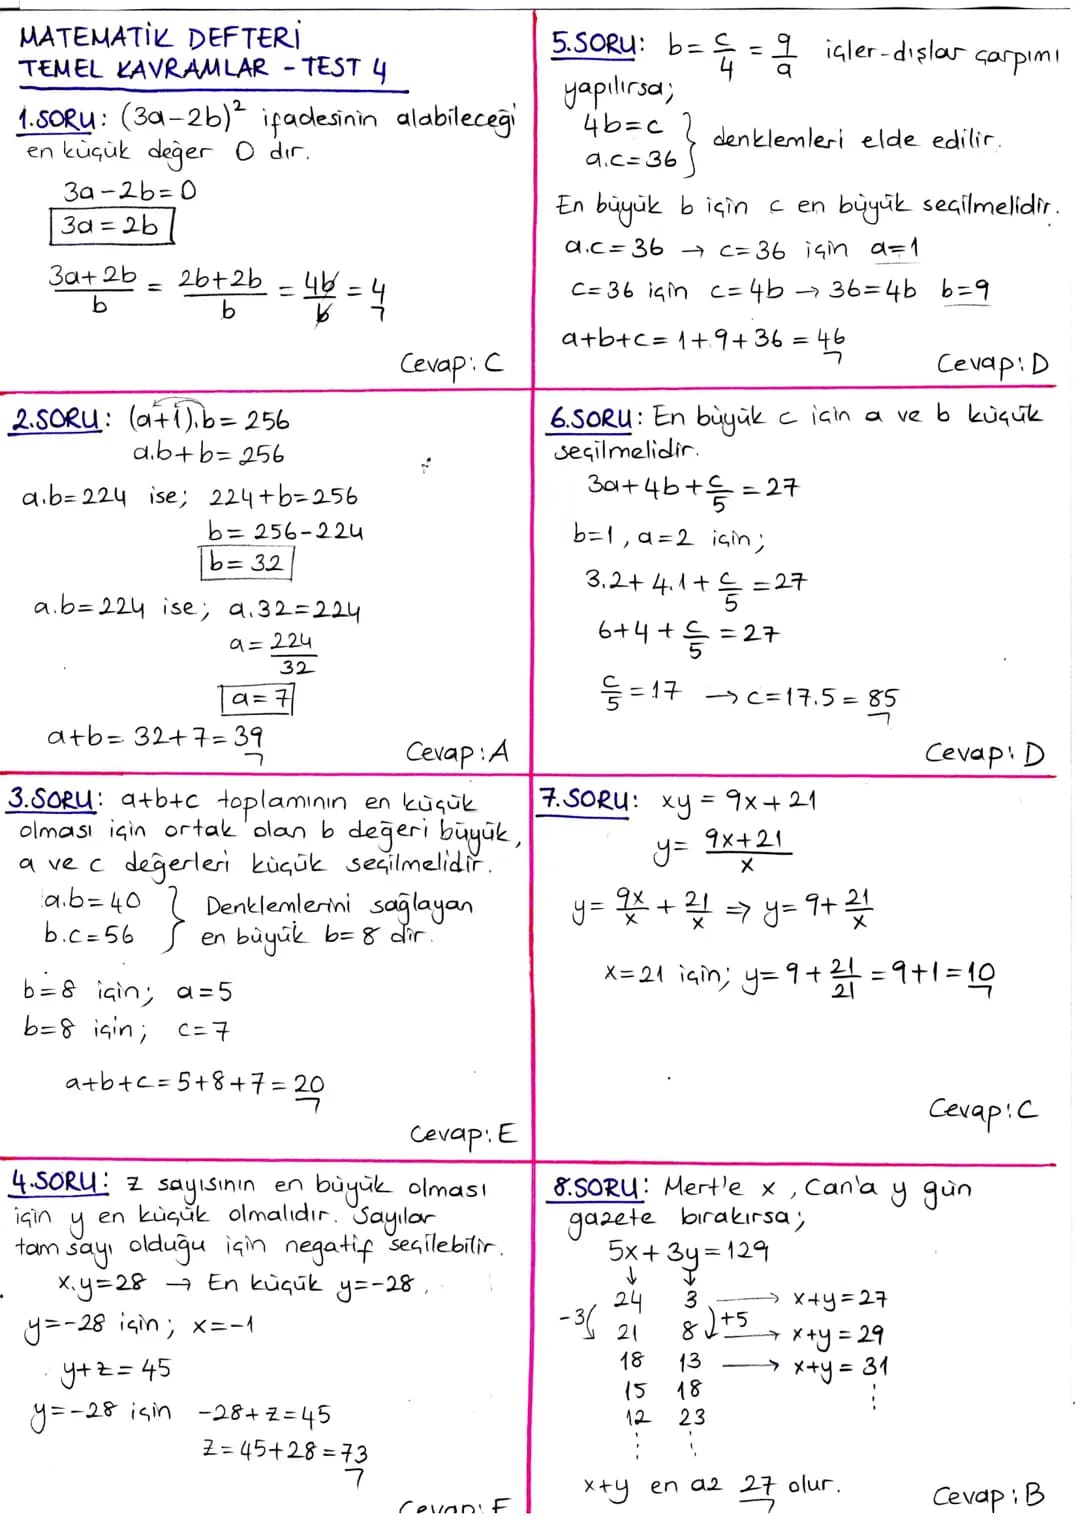 MATEMATİK DEFTERİ
TEMEL KAVRAMLAR - TEST 4
1.SORU: (3a-2b)² ifadesinin alabileceği
en küçük değer 0 dır.
3a-2b=0
3a=2b
(3a+2b)/b = (2b+2b)/b = 4b/b = 4
Cevap: C
2.SORU: (a+1).b=256
a.b+b=256
a.b=224 ise; 224+b=256
b=256-224
b=32
a.b=224 ise; a.32=224
a=224/32
a=7
a+b=32+7=39
Cevap: A
3.SORU: a+b+c toplamının en küçük
olması için ortak olan b değeri büyük,
a ve c değerleri küçük seçilmelidir.
a.b=40 } Denklemlerini sağlayan
b.c=56 } en büyük b=8 dir.
b=8 için; a=5
b=8 için; c=7
a+b+c=5+8+7=20
Cevap: E
4.SORU: z sayısının en büyük olması
için y en küçük olmalıdır. Sayılar
tam sayı olduğu için negatif seçilebilir.
x.y=28 → En küçük y=-28,
y=-28 için; x=-1
y+z=45
y=-28 için -28+z=45
z=45+28=73
Cevap: E
5.SORU: b=c/4=9/a içler-dışlar çarpımı
yapılırsa;
4b=c }
a.c=36 } denklemleri elde edilir.
En büyük b için c en büyük seçilmelidir.
a.c=36 → c=36 için a=1
c=36 için c=4b → 36=4b b=9
a+b+c=1+9+36=46
Cevap: D
6.SORU: En büyük c için a ve b küçük
seçilmelidir.
3a+4b+c/5=27
b=1, a=2 için;
3.2+4.1+c/5=27
6+4+c/5=27
c/5=17 → c=17.5=85
Cevap: D
7.SORU: xy=9x+21
y=(9x+21)/x
y=9x/x+21/x ⇒ y=9+21/x
x=21 için; y=9+21/21=9+1=10
Cevap: C
8.SORU: Mert'e x, Can'a y gün
gazete bırakırsa;
5x+3y=129
↓ ↓
24 3 → x+y=27
-3( 21 8 )+5 → x+y=29
18 13 → x+y=31
15 18 ⋮
12 23
⋮ ⋮
x+y en az 27 olur.
Cevap: B